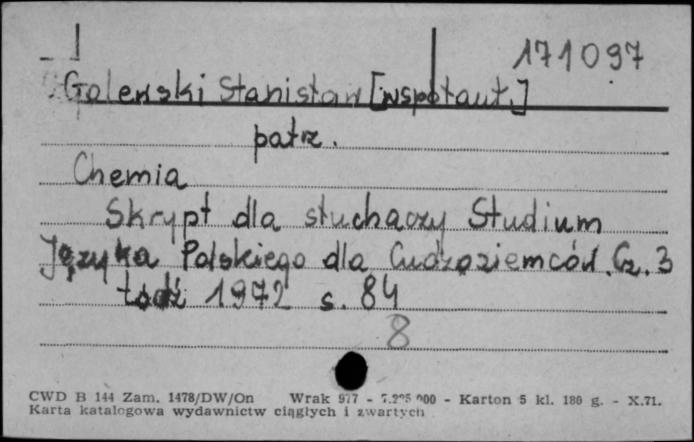 171097
Goleński Stanisław [współaut.]
patrz.
Chemia
Skrypt dla słuchaczy Studium
Języka Polskiego dla Cudzoziemców. Cz. 3
Łódź 1972 s. 84
8
CWD B 144 Zam. 1478/DW/On Wrak 977 - - Karton 5 kl. 180 g. - X.71.
Karta katalogowa wydawnictw ciągłych i zwartych